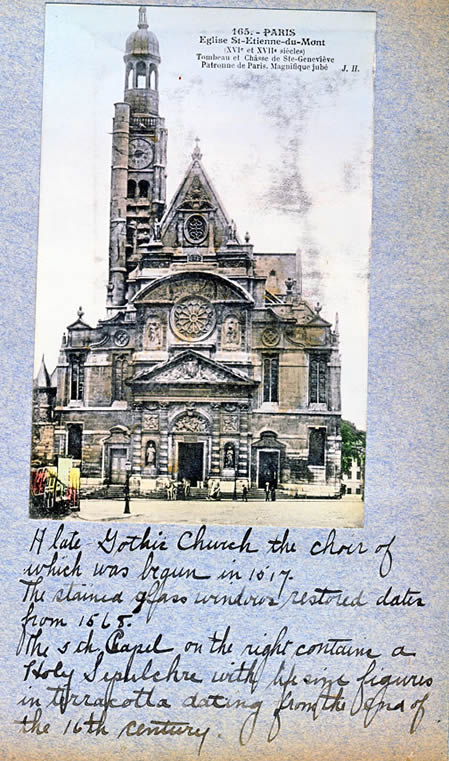 165. - PARIS
Eglise St-Etienne-du-Mont
(XVIe et XVIIe siècles)
Tombeau et Châsse de Ste-Geneviève
Patronne de Paris. Magnifique jubé
J. H.
A late Gothic Church the choir of
which was begun in 1517.
The stained glass windows restored dates
from 1568.
The 5th Capel on the right contains a
Holy Sepulchre with life size figures
in terracotta dating from the end of
the 16th century.